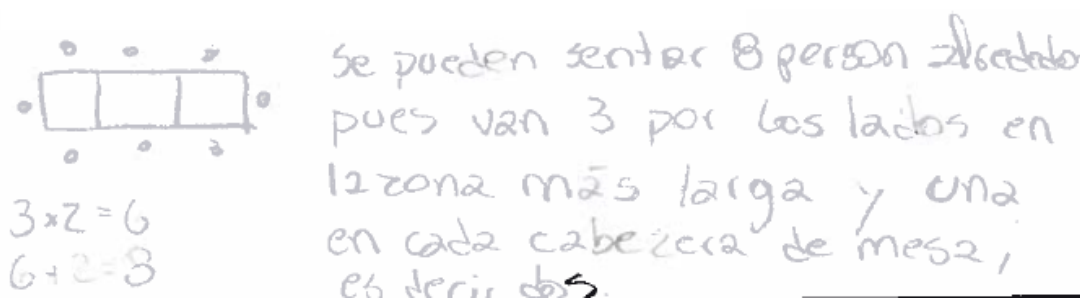 se pueden sentar 8 person alrededor
pues van 3 por los lados en
la zona más larga y una
en cada cabezera de mesa,
es decir dos.
3x2=6
6+2=8